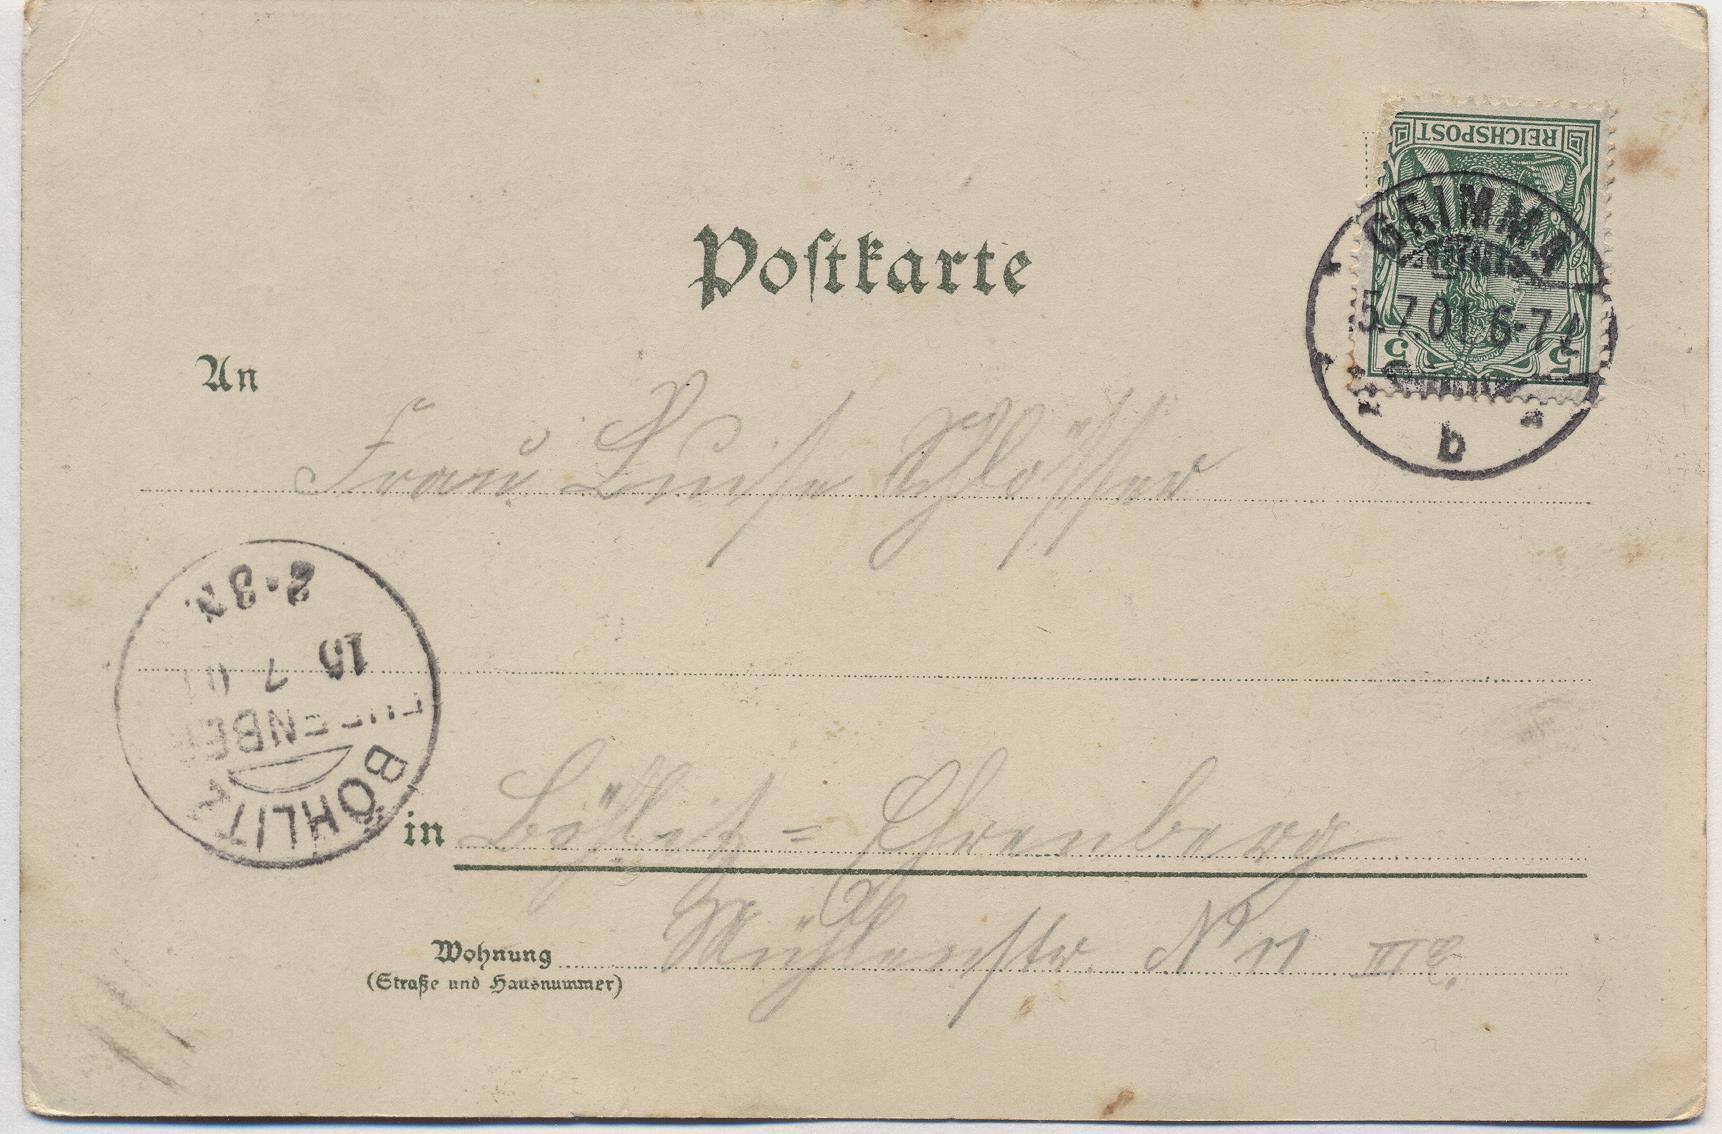 REICHSPOST
5 5
GRIMMA
5.7.01.6-7
b
Postkarte
An
Frau Luise Schlösser
2-3N.
15 7 01
BÖHLITZ
in Böhlitz = Ehrenberg
Wohnung Mühlenstr. N 11 III
(Straße und Hausnummer)